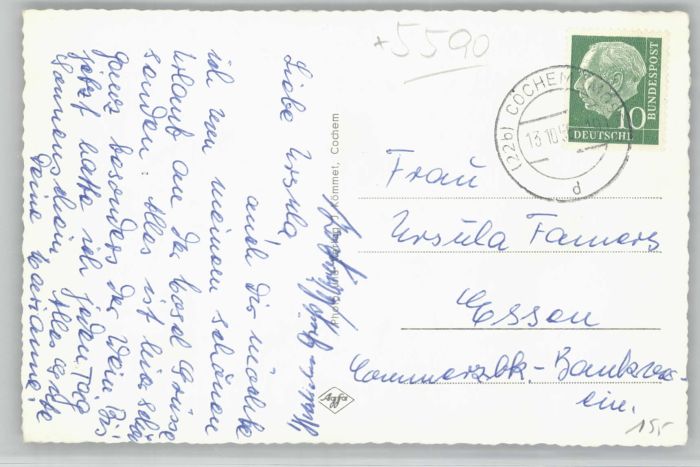 +5590
Liebe Ursula
auch Dir möchte
ich von meinem schönen
Urlaub an der Mosel Grüsse
senden. Alles ist hier schön
ganz besonders der Wein. Bis
jetzt hatte ich jeden Tag
Sonnenschein. Alles Gute
Deine Marianne.
Kömmet, Cochem
Agfa
(22b) COCHEM
13.10.5
d
10
BUNDESPOST
DEUTSCHE
Frau
Ursula
Essen
Commerzbk.- Bankver-
ein.
15,-